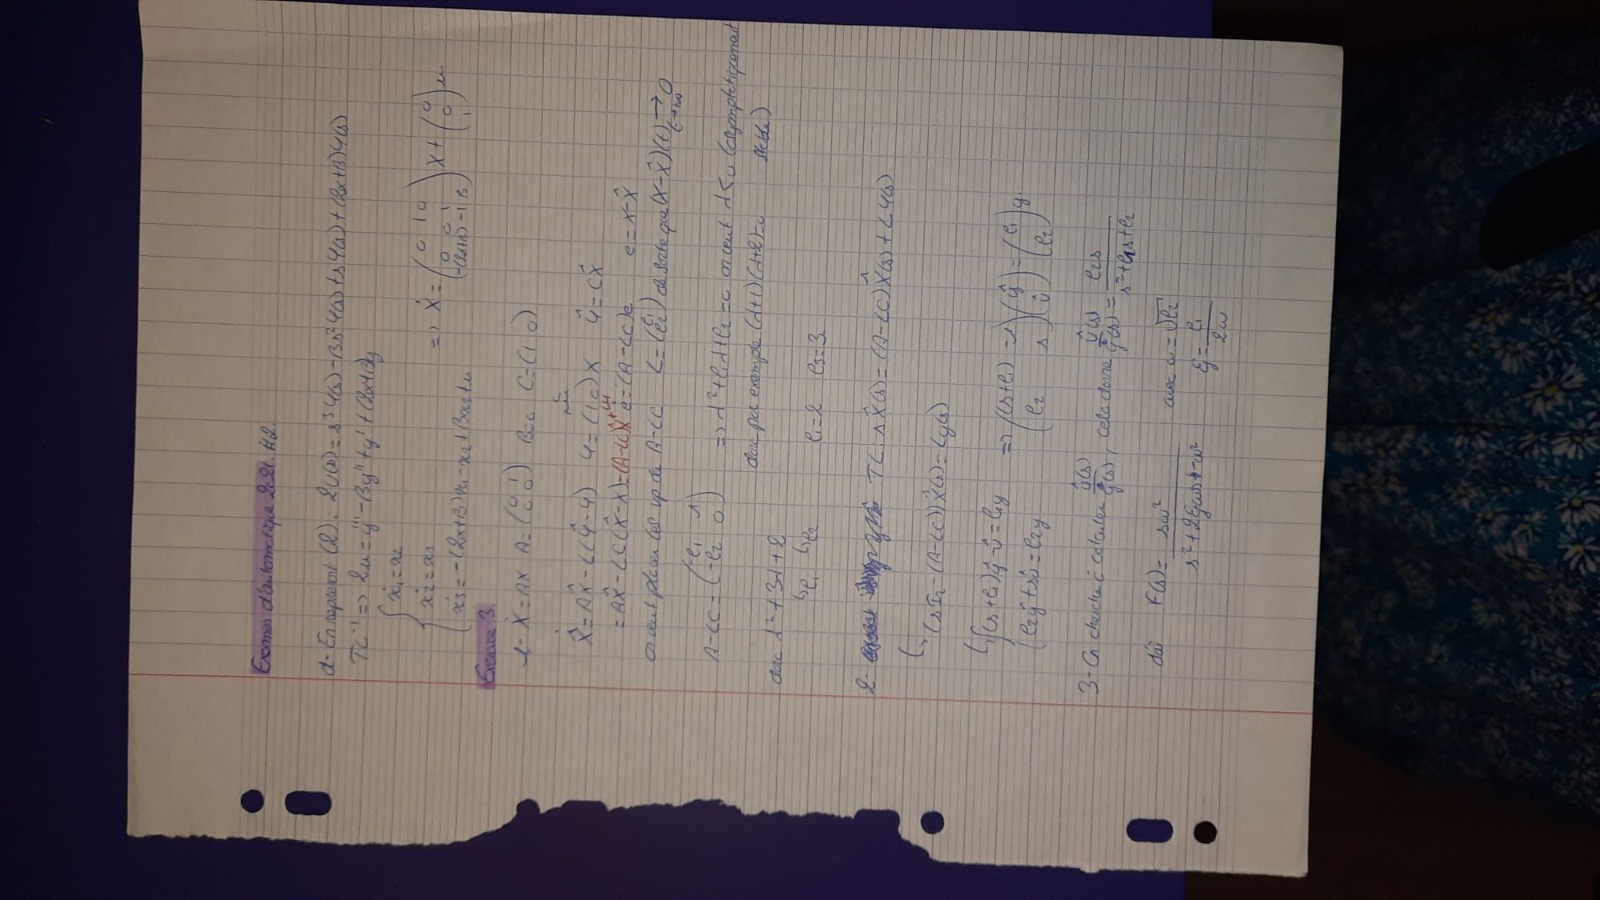 Examen d'automatique 2021. #2.
d- En reprenant (2): 2U(s) = s³Y(s) - βs²Y(s) + sY(s) + (2α+β)Y(s)
TL⁻¹ => 2u = y''' - βy'' + y' + (2α+β)y
{ ẋ₁ = x₂
ẋ₂ = x₃ => Ẋ = (0 1 0 / 0 0 1 / -(2α+β) -1 β) X + (0 / 0 / 1) u
ẋ₃ = -(2α+β)x₁ - x₂ + βx₃ + u
Exercice 3
1- Ẋ = AX A = (0 1 / 0 0) B=0 C = (1 0)
C
X̂̇ = AX̂ - L(Ŷ - Y) Y = (1 0)X Ŷ = CX̂
= AX̂ - LC(X̂ - X) = (A-LC)X̂ + LY ė = (A-LC)e e = X - X̂
on veut placer les vp de A-LC L = (l₁ / l₂) de sorte que (X - X̂)(t) → 0 t→∞
A-LC = (-l₁ 1 / -l₂ 0) => λ² + l₁λ + l₂ = 0 on veut λ<0 (asymptotiquement
donc par exemple (λ+1)(λ+2)=0 stable)
donc λ² + 3λ + 2
↳l₁ ↳l₂ l₁=2 l₂=3
2- TL: sX̂(s) = (A-LC)X̂(s) + LY(s)
↳ (sI₂ - (A-LC))X̂(s) = Ly(s)
↳ { (s+l₁)ŷ - v̂ = l₁y => ((s+l₁) -1 / l₂ s)(ŷ / v̂) = (l₁ / l₂) y.
l₂ŷ + sv̂ = l₂y
3- On cherche à calculer v̂(s)/ŷ(s), cela donne v̂(s)/ŷ(s) = l₂s / (s² + l₁s + l₂)
d'où F(s) = sω² / (s² + 2ξωs + ω²) avec ω = √l₂
ξ = l₁/2ω